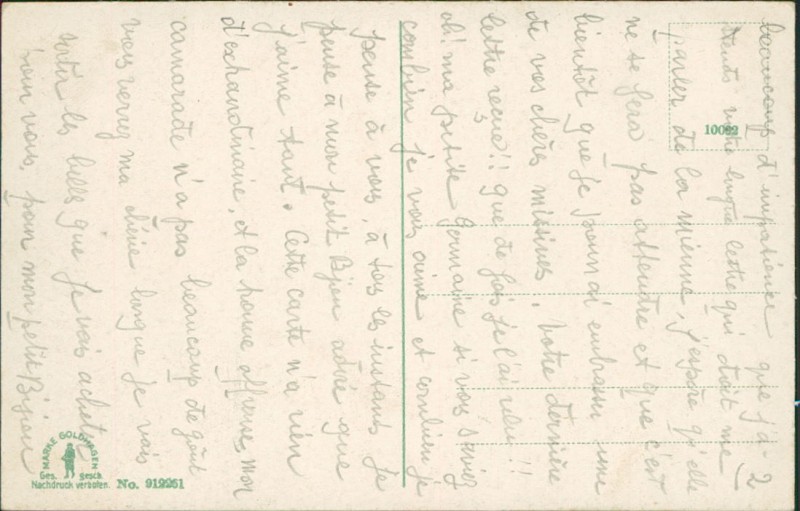 beaucoup d'impatience que j'a-2
tends votre longue lettre qui doit me
parler de la mienne, j'espère qu'elle
ne se fera pas attendre et que c'est
bientôt que je pourrai embrasser une
de vos chères missives. Votre dernière
lettre reçue!! que de fois je l'ai relu!!
oh! ma petite Germaine si vous saviez
combien je vous aime et combien je
pense à vous, à tous les instants je
pense à mon petit Bijou adoré que
j'aime tant. Cette carte n'a rien
d'exhandinaire, et la trouve affreuse, mon
camarade n'a pas beaucoup de goût
vous verrez ma chérie lorsque je vais
les belles que je vais acheter
pour vous, pour mon petit Bijou
10092
MARKE GOLDHASEN
Ges. gesch.
Nachdruck verboten.
No. 912251